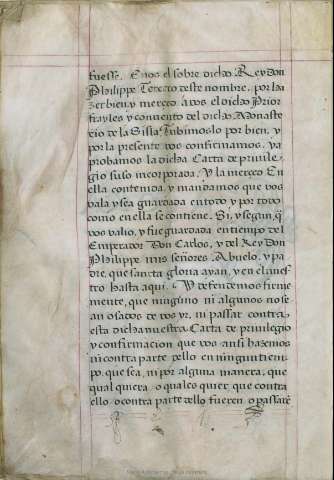 fuesse. E nos el sobre dicho Rey Don
Philippe Tercero deste nombre, por ha
zer bien, y merced a vos el dicho Prior
frayles y convento del dicho Monaste
rio de la Sisla Tubimoslo por bien, y
por la presente vos confirmamos, ya
probamos la dicha Carta de privile
gio suso incorporada. Y la merced En
ella contenida, y mandamos que vos
vala y sea guardada en todo y por todo
como en ella se contiene. Si, y segun, q̃
vos valio, y fue guardada en tiempo del
Emperador Don Carlos, y del Rey Don
Philippe mis señores Abuelo, y pa
dre, que sancta gloria ayan, y en el nr̃es
tro hasta aqui. Y defendemos firme
mente, que ninguno ni algunos no se
an osados de vos yr, ni passar contra
esta dicha nuestra Carta de privilegio
y confirmacion que vos ansi hazemos
ni contra parte dello en ningun tiem
po, que sea, ni por alguna manera, que
qual quiera o quales quier, que contra
ello o contra parte dello fueren, o passarẽ